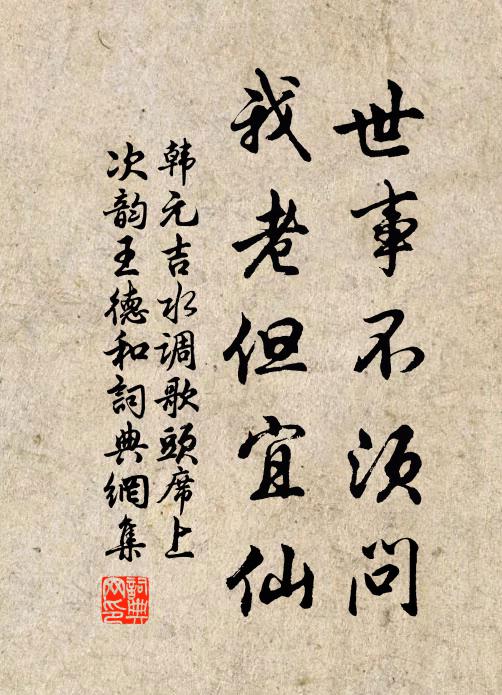 世事不须问
我老但宜仙
韩元吉水调歌頭席上
次韵王德和詞典網集
詞典
网印